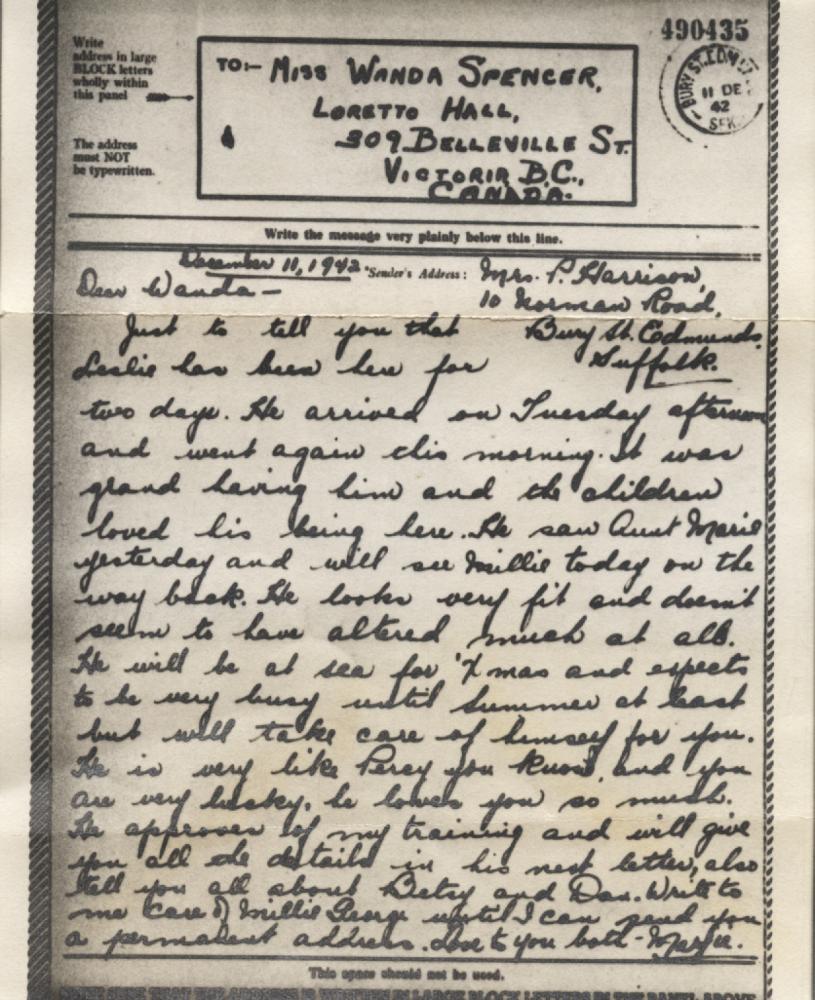 490435
Write
address in large
BLOCK letters
wholly within
this panel
The address
must NOT
be typewritten.
TO:- MISS WANDA SPENCER,
LORETTO HALL,
309 BELLEVILLE ST.
VICTORIA B.C.,
CANADA.
BURY ST. EDMUNDS
11 DE
42
Write the message very plainly below this line.
December 11, 1942
Sender's Address: Mrs. P. Harrison,
10 Norman Road,
Bury St. Edmunds.
Suffolk.
Dear Wanda -
Just to tell you that
Leslie has been here for
two days. He arrived on Tuesday afternoon
and went again this morning. It was
grand having him and the children
loved his being here. He saw Aunt Marie
yesterday and will see Millie today on the
way back. He looks very fit and doesn't
seem to have altered much at all.
He will be at sea for 'Xmas and expects
to be very busy until Summer at least
but will take care of himself for you.
He is very like Percy you know, and you
are very lucky, he loves you so much.
He approves of my training and will give
you all the details in his next letter, also
tell you all about Betsy and Dan. Write to
me care of Millie George until I can send you
a permanent address. Love to you both -
This space should not be used.